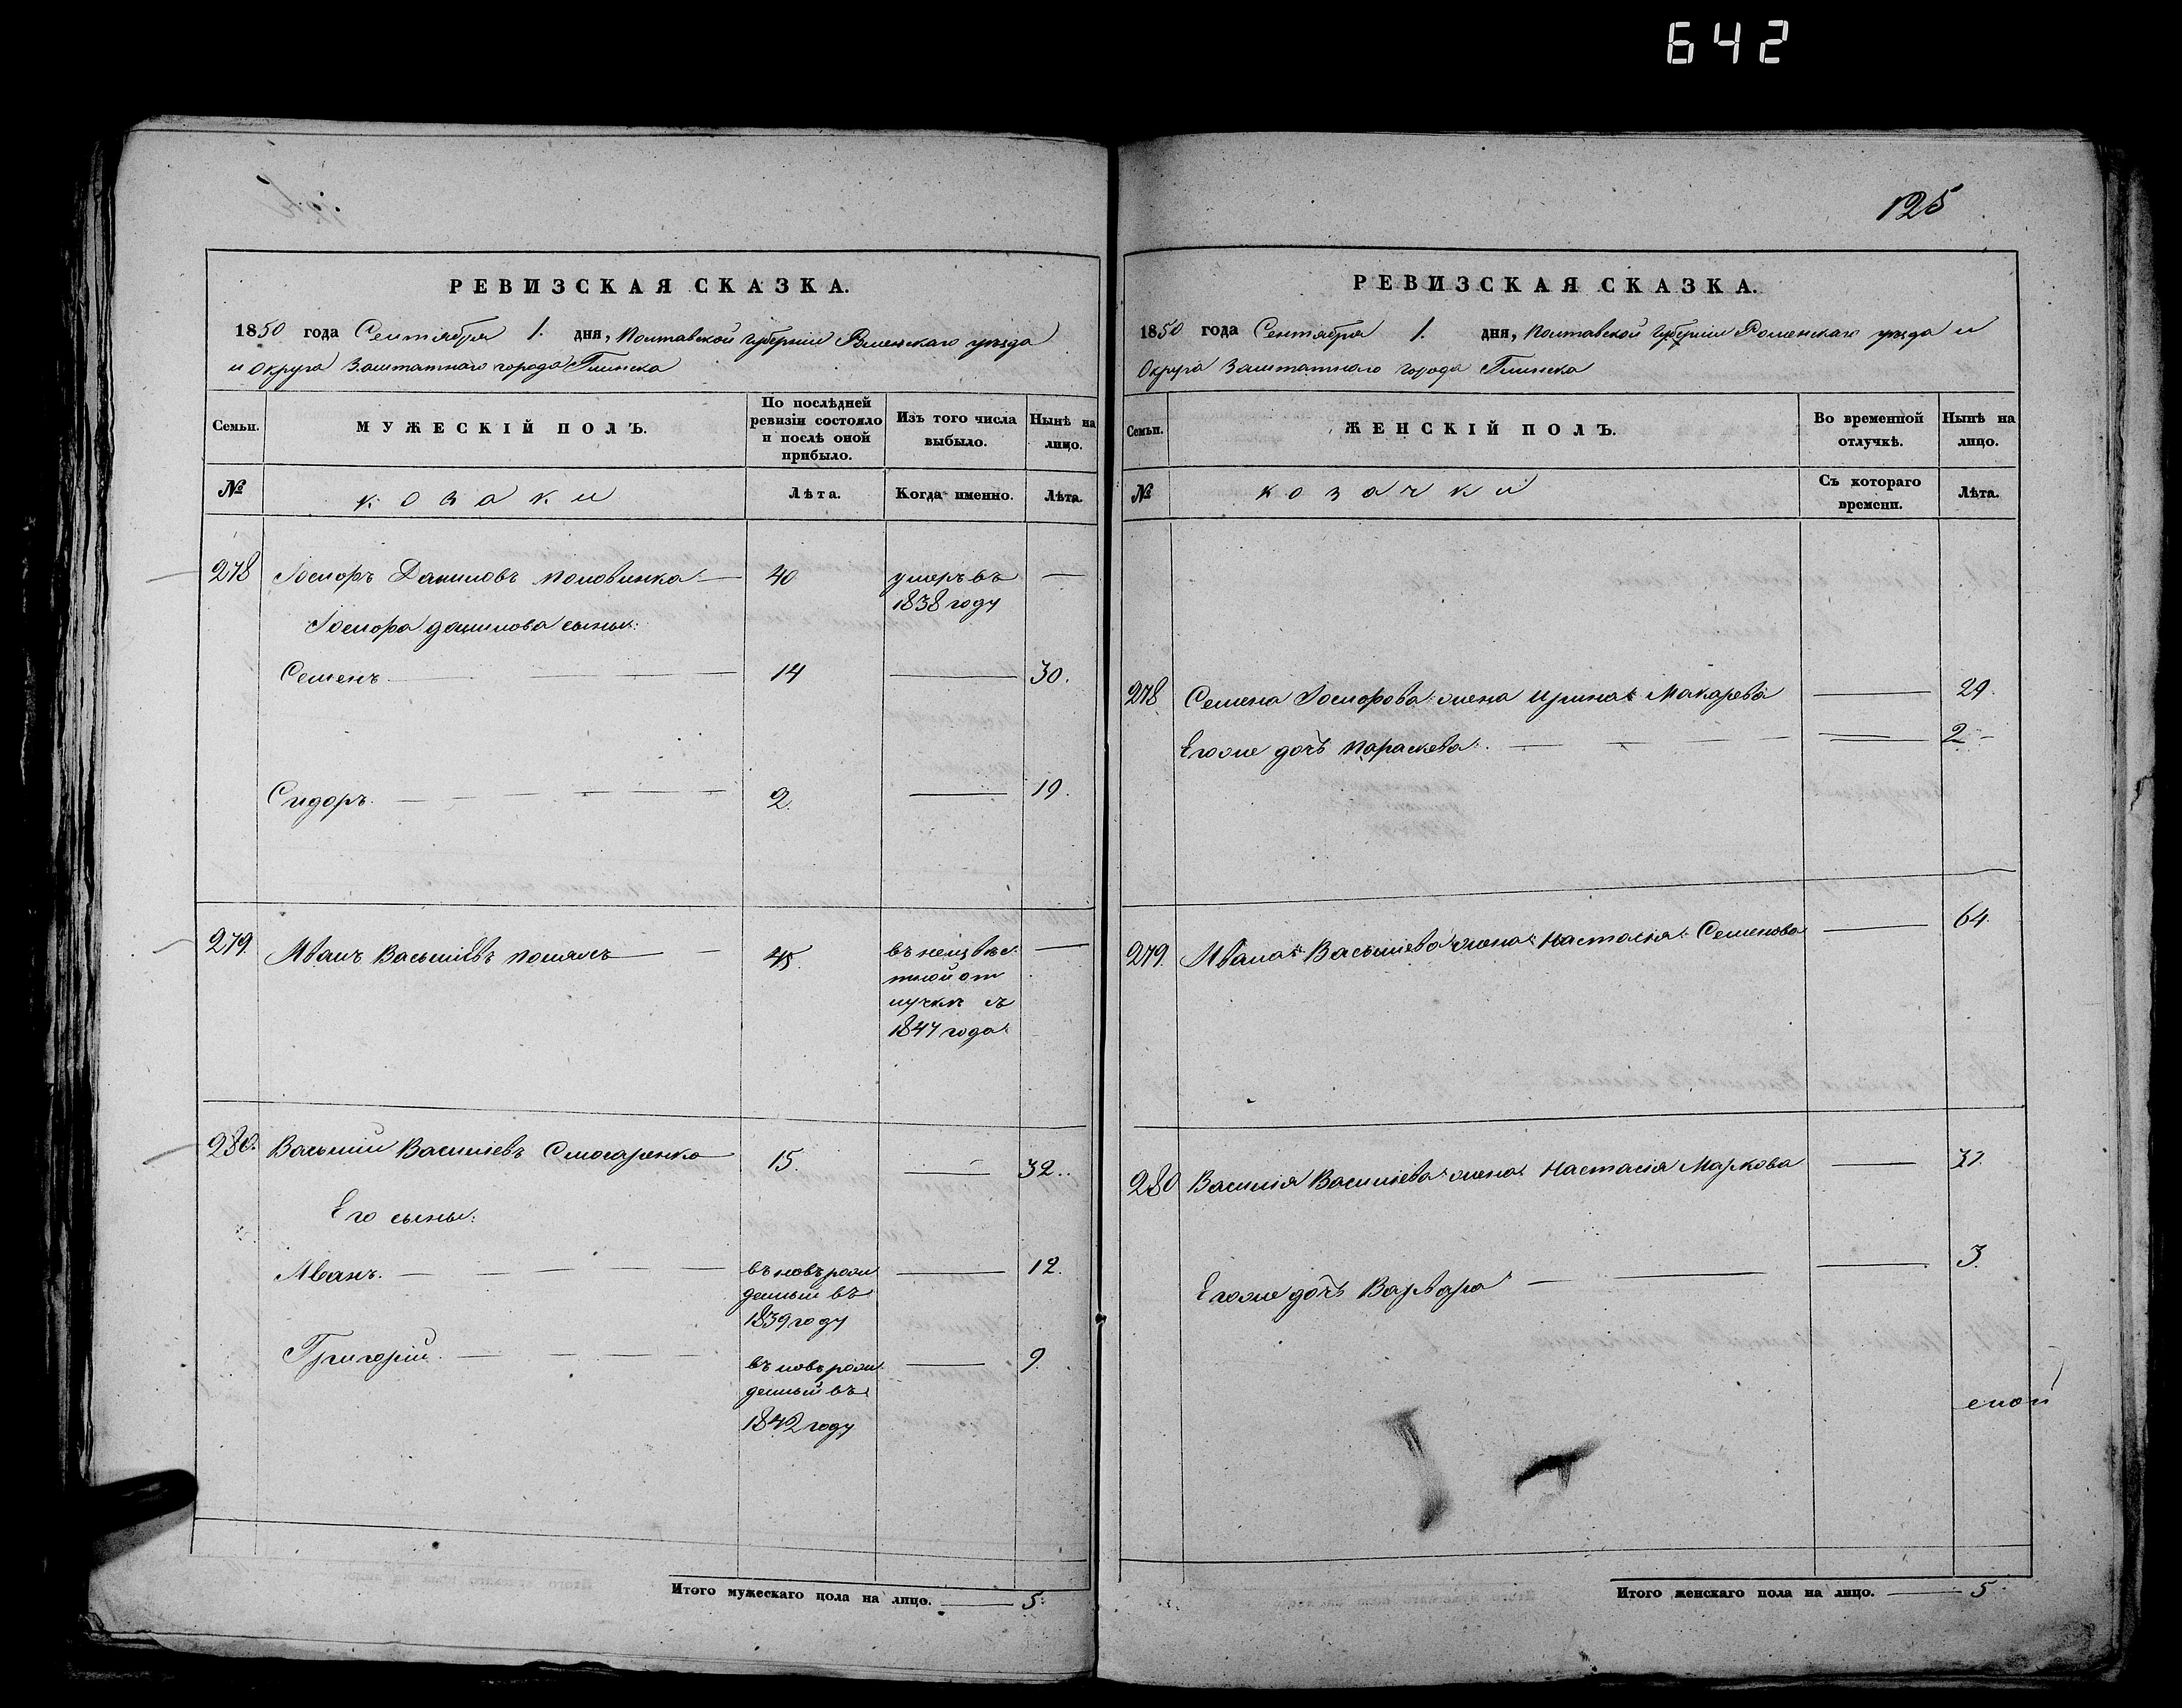 642
125
РЕВИЗСКАЯ СКАЗКА.
1850 года Сентября 1. дня, Полтавской Губернии Роменскаго уѣзда
и округа Заштатнаго города Глинска
Семьи.
МУЖЕСКІЙ ПОЛЪ.
По послѣдней
ревизіи состояло
и послѣ оной
прибыло.
Изъ того числа
выбыло.
Нынѣ на
лицо.
№
козаки
Лѣта.
Когда именно.
Лѣта.
278 Даниловъ Половинка 40 умеръ въ
1838 году
Данилова сыны:
Семенъ 14 30.
Сидоръ. 2. 19.
279. Иванъ Васильевъ 45. въ неизвѣс
тной от
лучкѣ съ
1847 года
280. Василій Васильевъ Слюсаренко 15. 32.
Его сыны:
Иванъ. въновь рож
денный въ
1839 году 12.
Григорій. въновь рож
денный въ
1842 году 9.
Итого мужескаго пола на лицо. 5.
РЕВИЗСКАЯ СКАЗКА.
1850 года Сентября 1. дня, Полтавской Губерніи Роменскаго уѣзда и
Округа Заштатнаго города Глинска
Семьи.
ЖЕНСКІЙ ПОЛЪ.
Во временной
отлучкѣ.
Нынѣ на
лицо.
№
козачки
Съ котораго
времени.
Лѣта.
278 Семена жена Ирина Макарева 29.
Егоже дочь Параскева. 2
279. Ивана Васильева жена Настасія Семенова 64.
280 Василія Васильева жена Настасія Маркова 32.
Егоже дочь Варвара 3.
Итого женскаго пола на лицо. 5